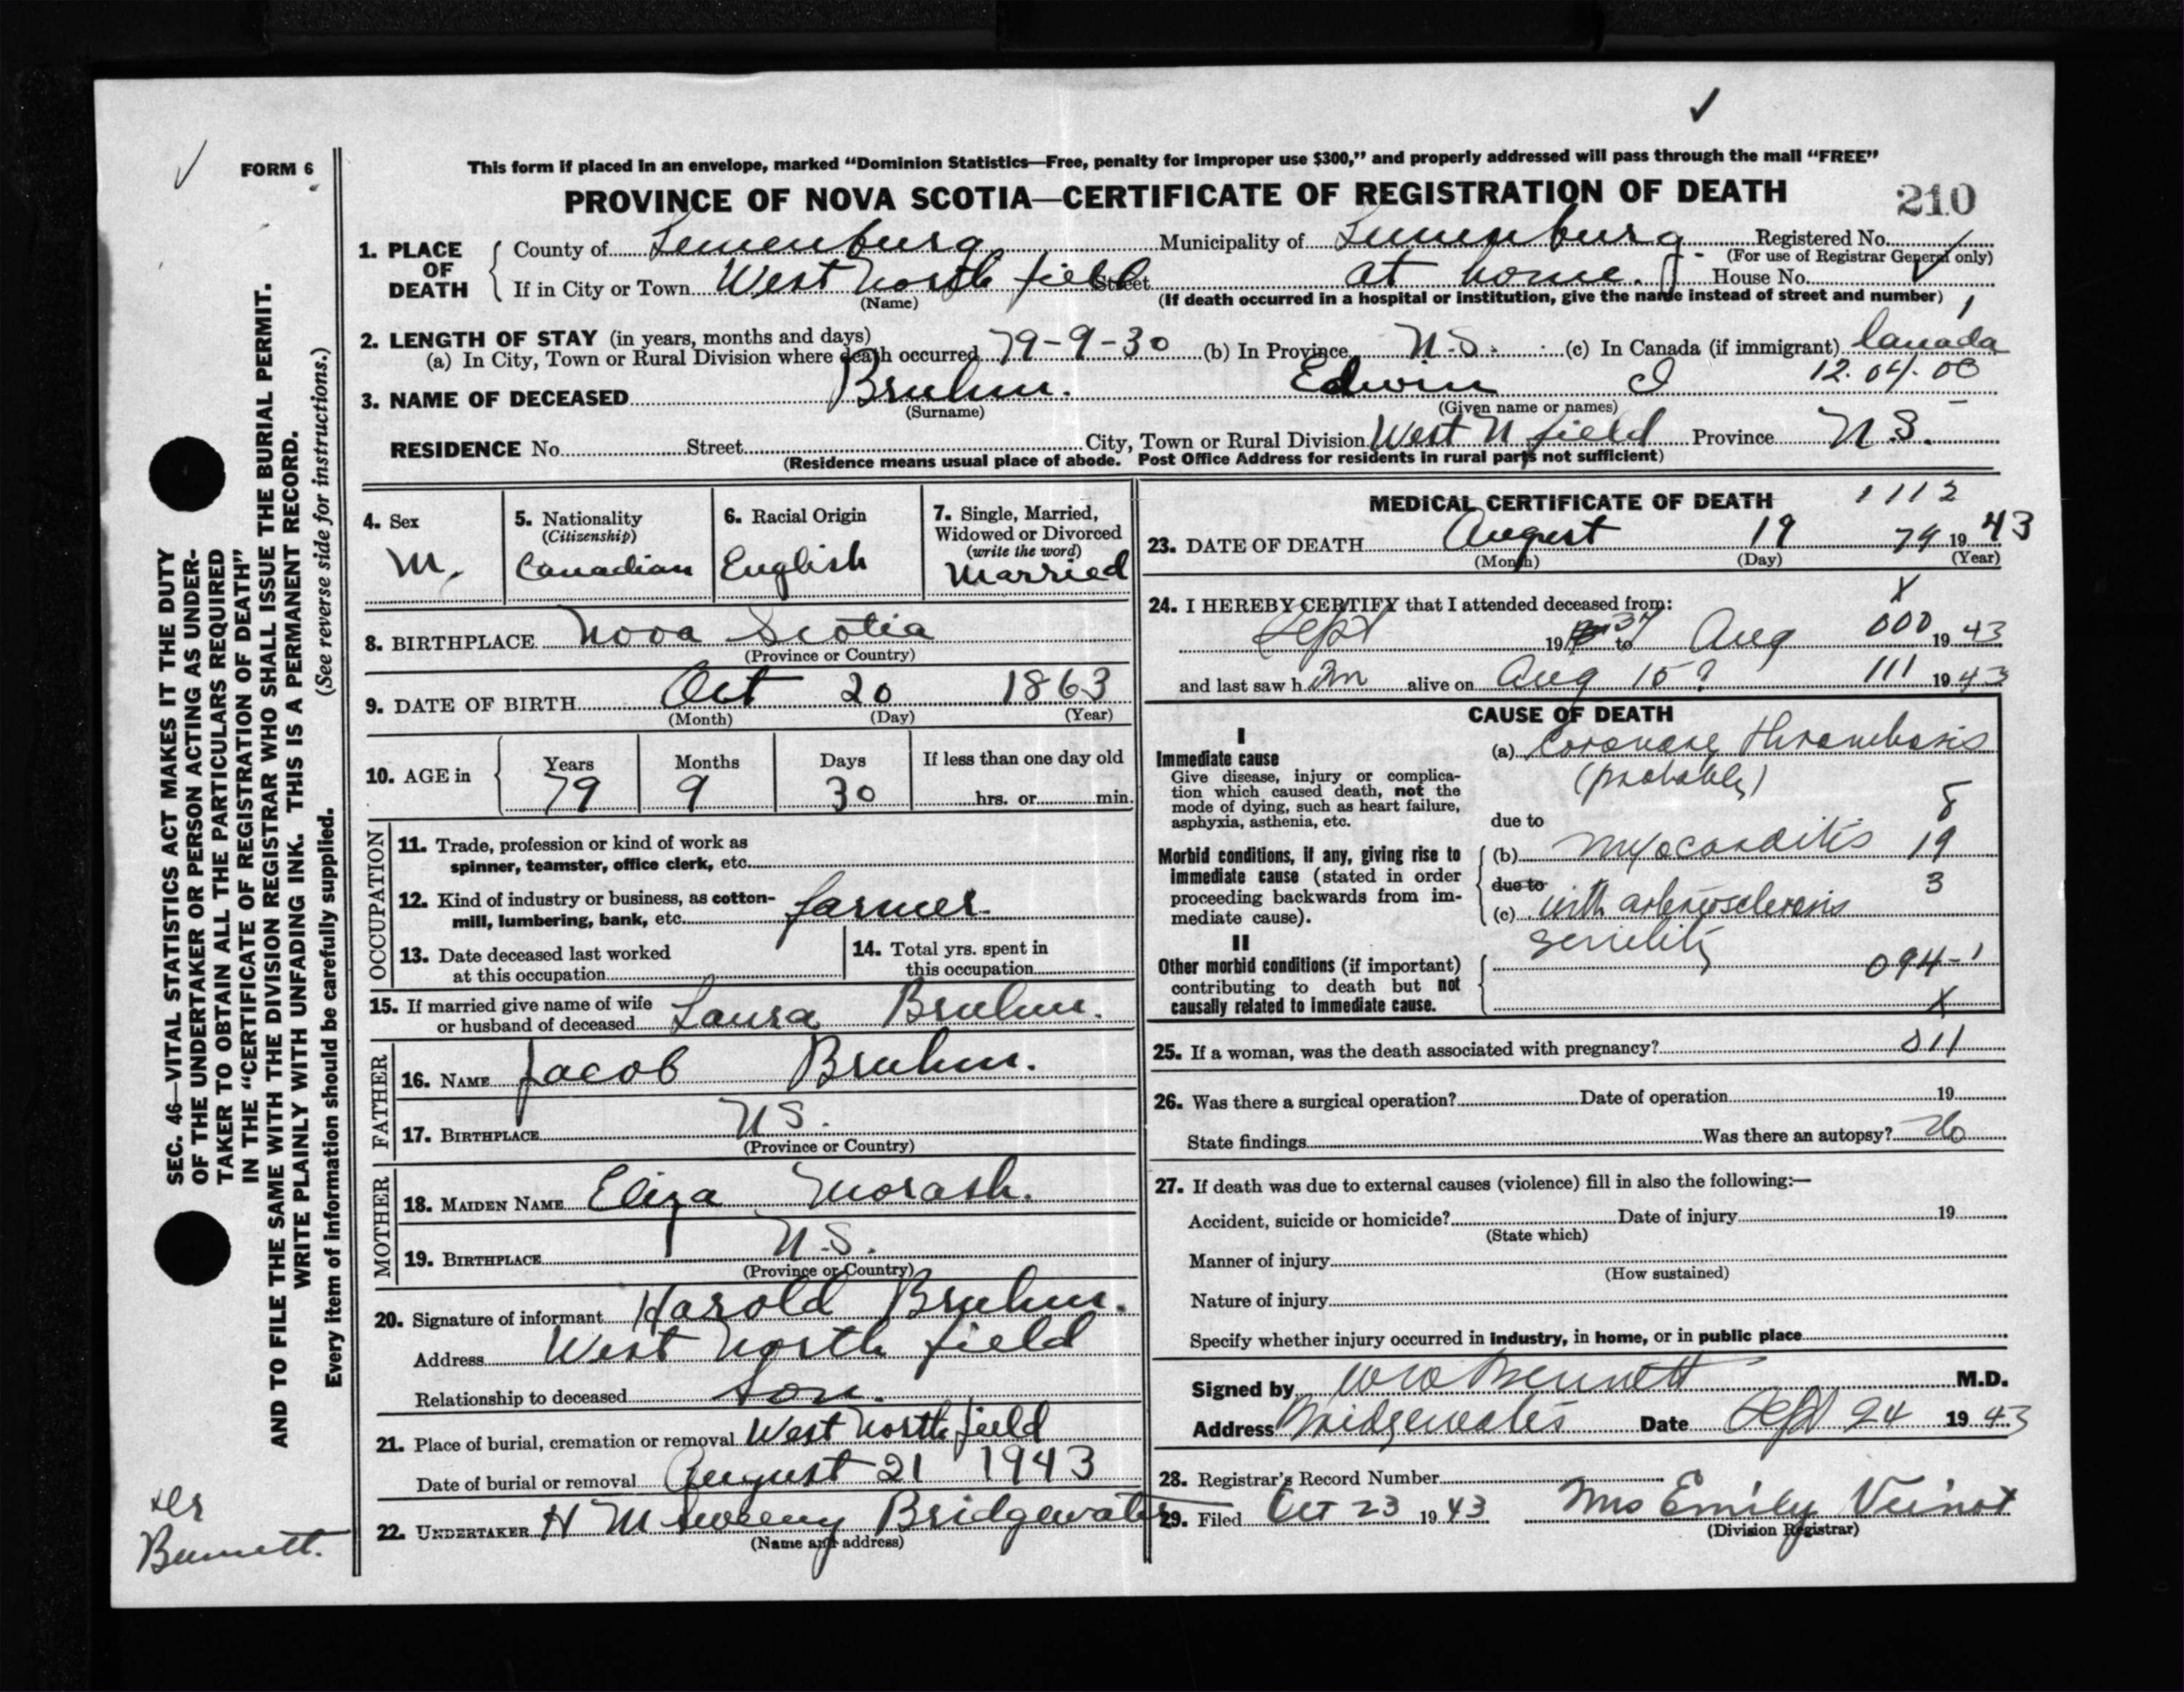 This form if placed in an envelope, marked "Dominion Statistics—Free, penalty for improper use $300," and properly addressed will pass through the mail "FREE"
FORM 6
PROVINCE OF NOVA SCOTIA—CERTIFICATE OF REGISTRATION OF DEATH
210
1. PLACE OF DEATH
County of Lunenburg Municipality of Lunenburg Registered No.
(For use of Registrar General only)
If in City or Town West North field Street at home. House No.
(Name) (If death occurred in a hospital or institution, give the name instead of street and number)
2. LENGTH OF STAY (in years, months and days)
(a) In City, Town or Rural Division where death occurred 79-9-30 (b) In Province N.S. (c) In Canada (if immigrant) Canada
12.04.00
3. NAME OF DECEASED Bruhm. Edwin I
(Surname) (Given name or names)
RESIDENCE No. Street City, Town or Rural Division West N field Province N.S.
(Residence means usual place of abode. Post Office Address for residents in rural parts not sufficient)
4. Sex M.
5. Nationality (Citizenship) Canadian
6. Racial Origin English
7. Single, Married, Widowed or Divorced (write the word) Married
8. BIRTHPLACE Nova Scotia
(Province or Country)
9. DATE OF BIRTH Oct 20 1863
(Month) (Day) (Year)
10. AGE in Years 79 Months 9 Days 30 If less than one day old hrs. or min.
OCCUPATION
11. Trade, profession or kind of work as spinner, teamster, office clerk, etc.
12. Kind of industry or business, as cotton-mill, lumbering, bank, etc. farmer.
13. Date deceased last worked at this occupation
14. Total yrs. spent in this occupation
15. If married give name of wife or husband of deceased Laura Bruhm.
FATHER
16. NAME Jacob Bruhm.
17. BIRTHPLACE N S.
(Province or Country)
MOTHER
18. MAIDEN NAME Eliza Morash.
19. BIRTHPLACE N.S.
(Province or Country)
20. Signature of informant Harold Bruhm.
Address West North field
Relationship to deceased Son.
21. Place of burial, cremation or removal West North field
Date of burial or removal August 21 1943
22. UNDERTAKER H M Sweeny Bridgewater
(Name and address)
MEDICAL CERTIFICATE OF DEATH 1112
23. DATE OF DEATH August 19 79 1943
(Month) (Day) (Year)
24. I HEREBY CERTIFY that I attended deceased from:
X
Sept 19 37 to Aug 000 1943
and last saw him alive on Aug 15? 111 1943
CAUSE OF DEATH
I
Immediate cause
Give disease, injury or complication which caused death, not the mode of dying, such as heart failure, asphyxia, asthenia, etc.
(a) Coronary thrombosis
(probably)
8
due to
Morbid conditions, if any, giving rise to immediate cause (stated in order proceeding backwards from immediate cause).
(b) myocarditis 19
due to 3
(c) with arteriosclerosis
senility
II
Other morbid conditions (if important) contributing to death but not causally related to immediate cause.
094-1
X
25. If a woman, was the death associated with pregnancy? 011
26. Was there a surgical operation? Date of operation 19
State findings Was there an autopsy? No
27. If death was due to external causes (violence) fill in also the following:—
Accident, suicide or homicide? Date of injury 19
(State which)
Manner of injury
(How sustained)
Nature of injury
Specify whether injury occurred in industry, in home, or in public place
Signed by W W Bennett M.D.
Address Bridgewater Date Sept 24 1943
28. Registrar's Record Number
29. Filed Oct 23 1943 Mrs Emily Veinot
(Division Registrar)
SEC. 46—VITAL STATISTICS ACT MAKES IT THE DUTY
OF THE UNDERTAKER OR PERSON ACTING AS UNDER-
TAKER TO OBTAIN ALL THE PARTICULARS REQUIRED
IN THE "CERTIFICATE OF REGISTRATION OF DEATH"
AND TO FILE THE SAME WITH THE DIVISION REGISTRAR WHO SHALL ISSUE THE BURIAL PERMIT.
WRITE PLAINLY WITH UNFADING INK. THIS IS A PERMANENT RECORD.
Every item of information should be carefully supplied. (See reverse side for instructions.)
Dr
Bennett.